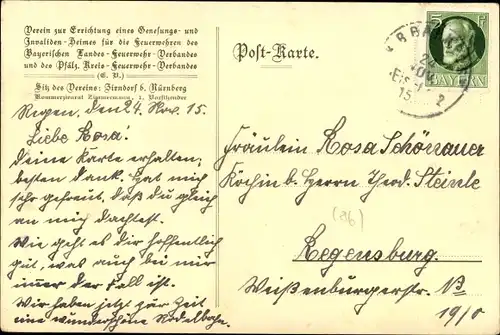 Verein zur Errichtung eines Genesungs- und
Invaliden-Heimes für die Feuerwehren des
Bayerischen Landes-Feuerwehr-Verbandes
und des Pfälz. Kreis-Feuerwehr-Verbandes
(E. V.)
Sitz des Vereins: Zirndorf b. Nürnberg
Kommerzienrat Zimmermann, 1. Vorsitzender
Post-Karte.
5 Pf
BAYERN
24. Nov. 15.
Liebe Rosa!
Deine Karte erhalten;
besten Dank. Hat mich
sehr gefreut, daß du gleich
an mich dachtest.
Wie geht es dir hoffentlich
gut, was auch bei mir
immer der Fall ist.
Wir haben jetzt zur Zeit
eine wunderschöne Rodelbahn.
Fräulein Rosa Schönauer
Köchin b. Herrn Theod. Steinle
(86)
Regensburg.
Weißenburgerstr. No
19/0